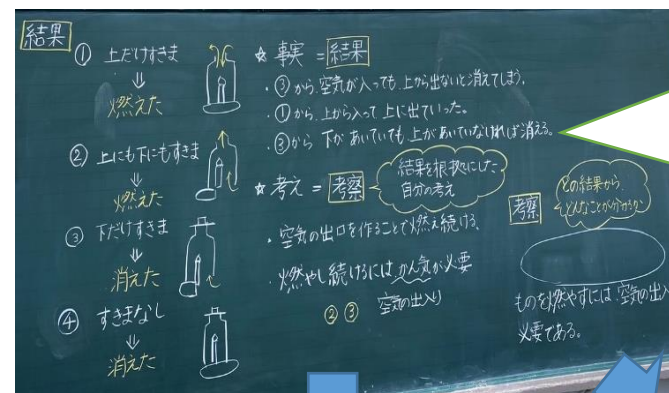 結果
① 上だけすきま
⇓
燃えた
② 上にも下にもすきま
⇓
燃えた
③ 下だけすきま
⇓
消えた
④ すきまなし
⇓
消えた
☆ 事実 = 結果
・③から、空気が入っても、上から出ないと消えてしまう。
・①から、上から入って上に出ていった。
・③から 下があいていても上があいていなければ消える。
☆ 考え = 考察
結果を根拠にした
自分の考え
・空気の出口を作ることで燃え続ける。
・燃やし続けるにはかん気が必要
空気の出入り
② ③
考察
どの結果から、
どんなことが分かるか
ものを燃やすには、空気の出入
必要である。